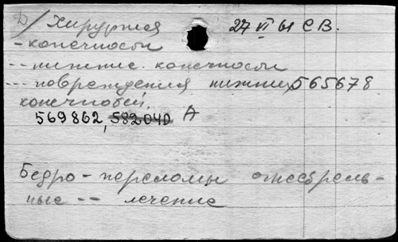 D/ Хирургия 27 VI 61 СВ.
- конечности
-- нижние конечности
-- повреждения нижних 565678
конечностей.
569862, 582040 А
Бедро - переломы огнестрель-
ные -- лечение